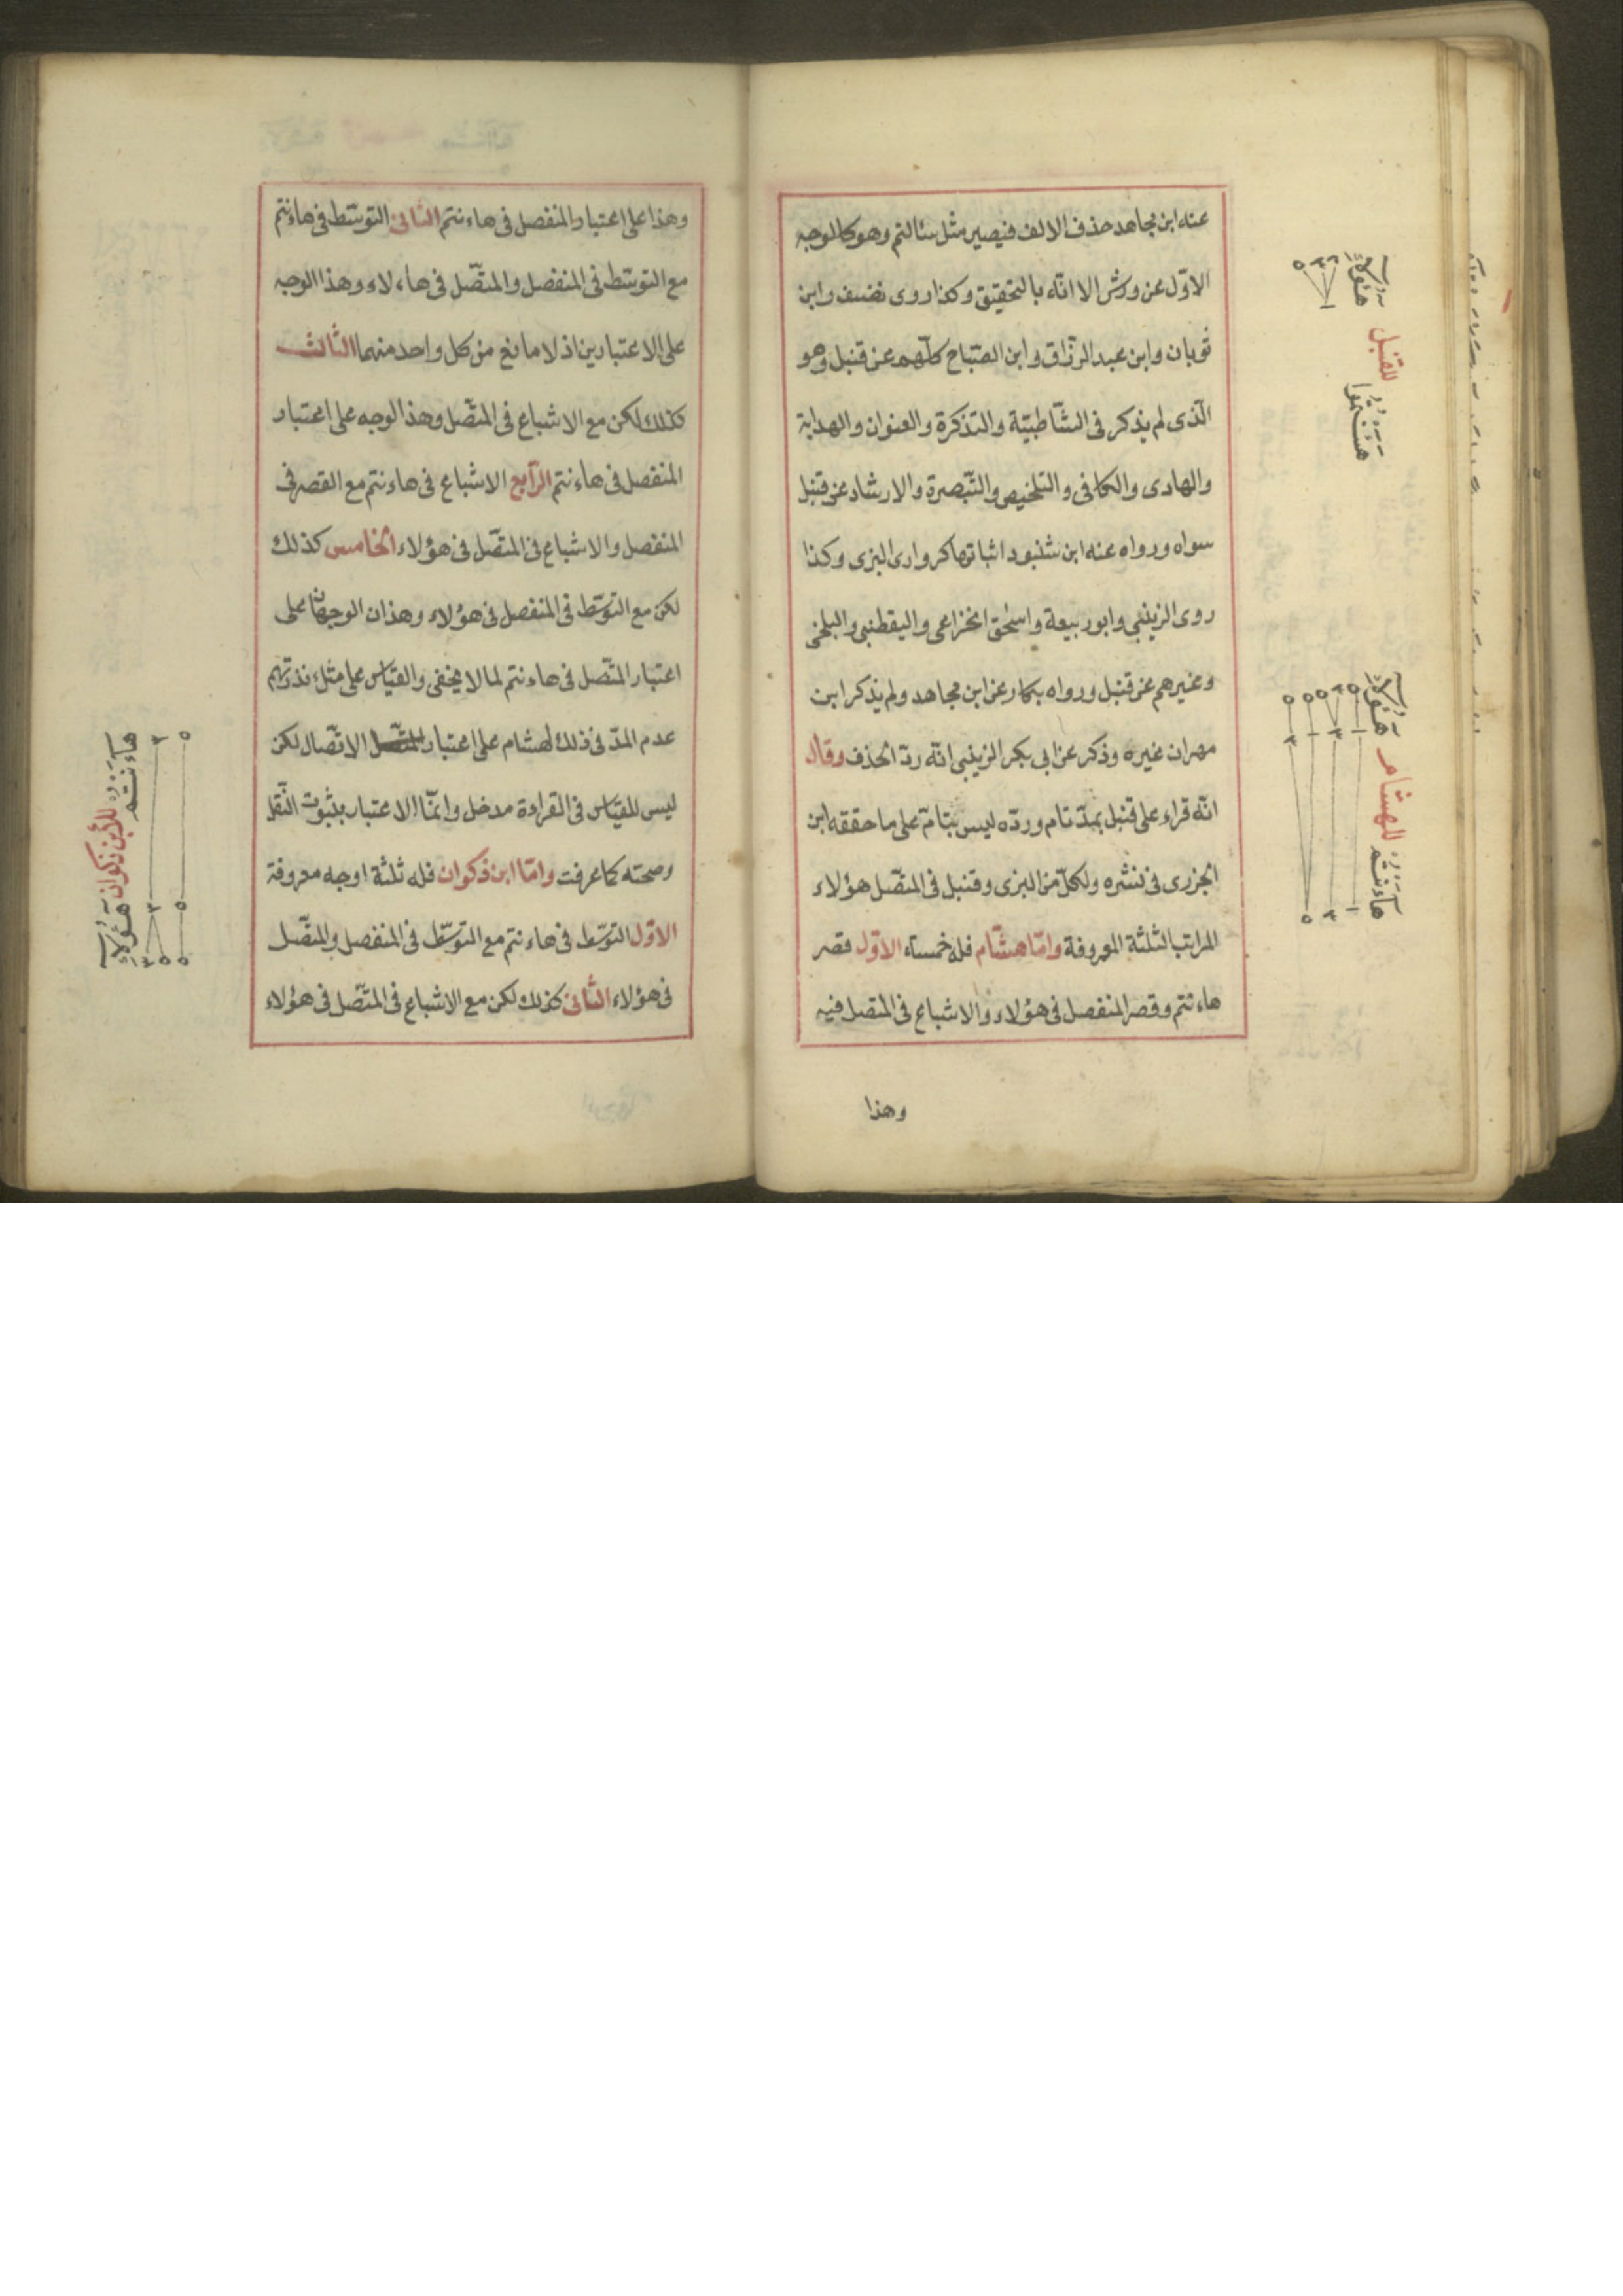 عنه ابن مجاهد حذف الالف فيصير مثل سئالتم وهو كالوجه
الاوّل عن ورش الا انّه بالتحقيق وكذا روى نضيف وابن
ثوبان وابن عبد الرزّاق وابن الصّباح كلّهم عن قنبل وهو
الّذى لم يذكر فى الشّاطبيّة والتذكرة والعنوان والهداية
والهادى والكافى والتلخيص والتّبصرة والارشاد عن قنبل
سواه ورواه عنه ابن شنبود اثباتها كروارى البزى وكذا
روى الزينبى وابو ربيعة واسحق الخزاعى واليقطنى والبلخى
وغيرهم عن قنبل ورواه بكار عن ابن مجاهد ولم يذكر ابن
مهران غيره وذكر عن ابى بكر الزينبى انّه ردّ الحذف وقال
انّه قراء على قنبل بمدّ تام وردّه ليس بتامّ على ما حققه ابن
الجزرى فى نشره ولكلّ من البزى وقنبل فى المتّصل هؤلاء
المراتب الثلثة المعروفة وامّا هشام فله خمسة الاوّل قصر
هاءنتم وقصر المنفصل فى هؤلاء والاشباع فى المتصل فيه
وهذا
هؤلاء
للقنبل
هؤلاء
للهشام
هاءنتم
وهذا على اعتبار المنفصل فى هاءنتم الثانى التوسّط فى هاءنتم
مع التوسّط فى المنفصل والمتّصل فى هاءلاء وهذا الوجه
على الاعتبارين اذ لا مانع من كل واحد منهما الثالث
كذلك لكن مع الاشباع فى المتّصل وهذا الوجه على اعتبار
المنفصل فى هاءنتم الرّابع الاشباع فى هاءنتم مع القصر فى
المنفصل والاشباع فى المتّصل فى هؤلاء الخامس كذلك
لكن مع التوسّط فى المنفصل فى هؤلاء وهذان الوجهان على
اعتبار المتّصل فى هاءنتم لما لا يخفى والقياس على مثل ءنذرتهم
عدم المدّ فى ذلك لهشام على اعتبار الاتّصال لكن
ليس للقياس فى القراءة مدخل وانّما الاعتبار بثبوت النّقل
وصحته كما عرفت وامّا ابن ذكوان فله ثلثة اوجه معروفة
الاوّل التوسّط فى هاءنتم مع التوسّط فى المنفصل والمتّصل
فى هؤلاء الثّانى كذلك لكن مع الاشباع فى المتّصل فى هؤلاء
هاءنتم
للأبن ذكوان
هؤلاء